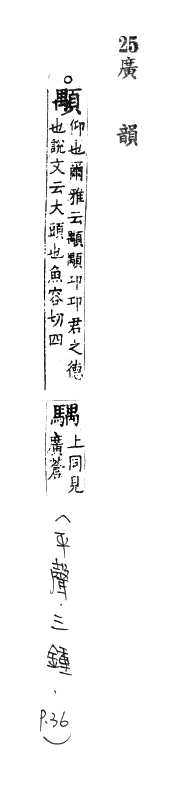 25廣韻
。顒仰也爾雅云顒顒卬卬君之德
也說文云大頭也魚容切四
上同見
廣蒼
(平聲.三鍾、P.36)